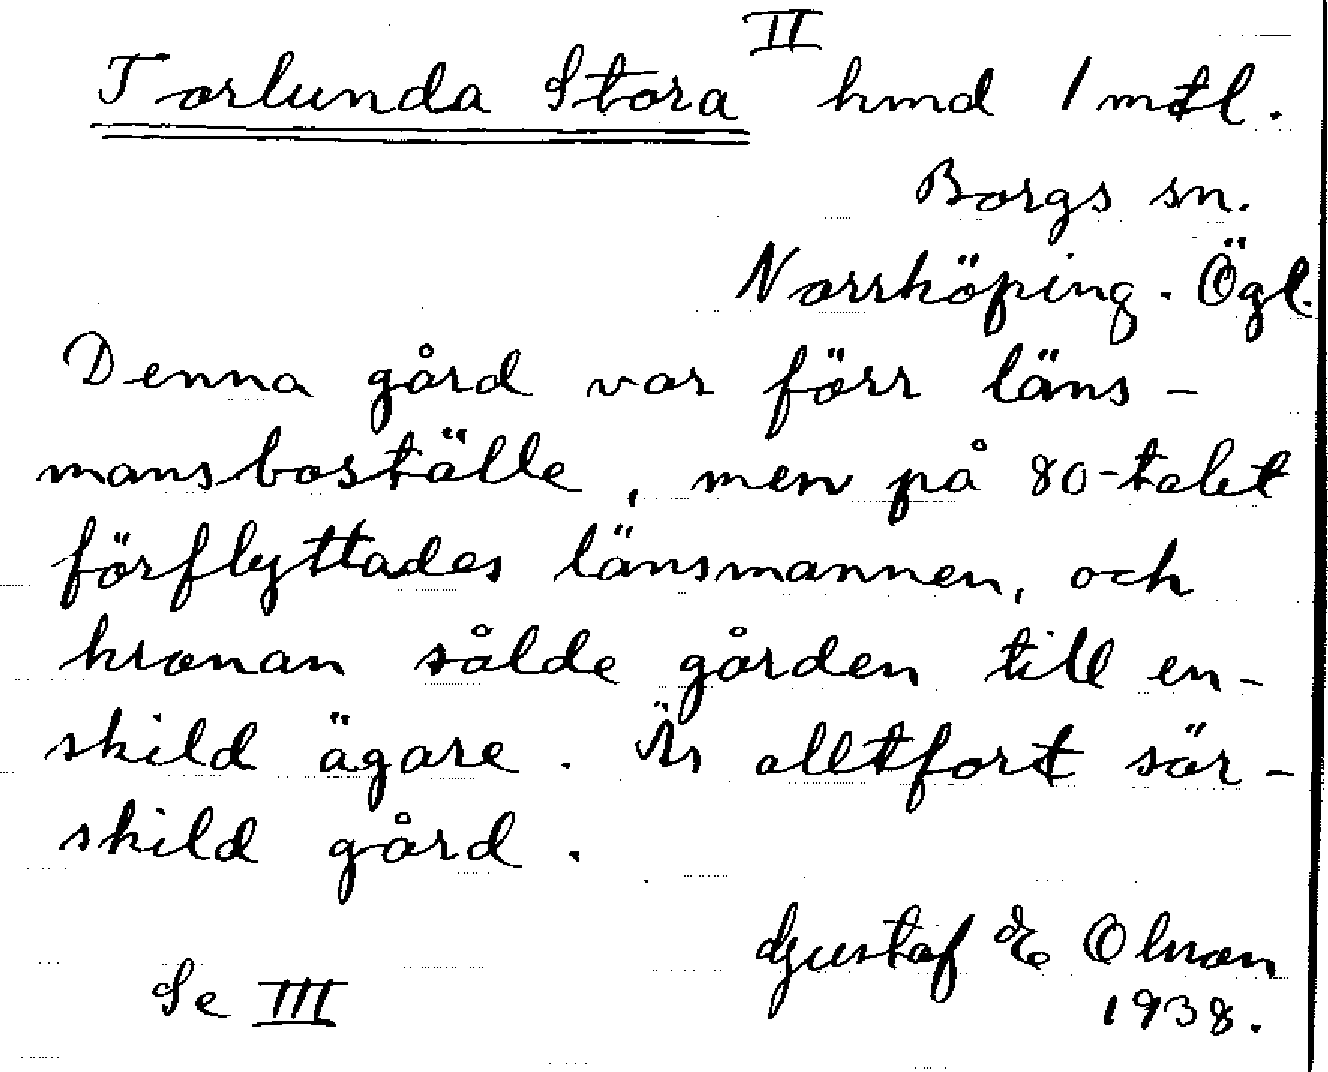 II
Torlunda Stora hmd 1 mtl.
Borgs sn.
Norrköping. Ögl.
Denna gård var förr läns-
mansboställe, men på 80-talet
förflyttades länsmannen, och
kronan sålde gården till en-
skild ägare. Är alltfort sär-
skild gård.
Gustaf E. Olsson
Se III
1938.